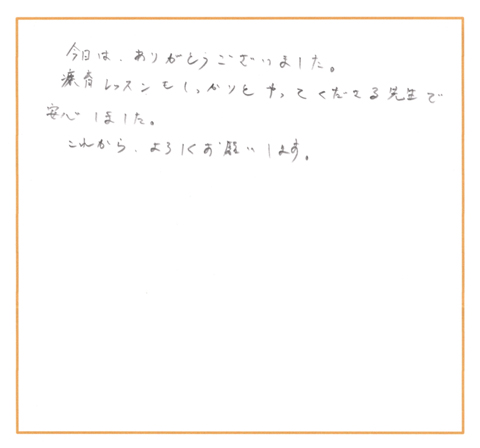 今日は、ありがとうございました。
療育レッスンもしっかりとやってくださる先生で
安心しました。
これから、よろしくお願いします。